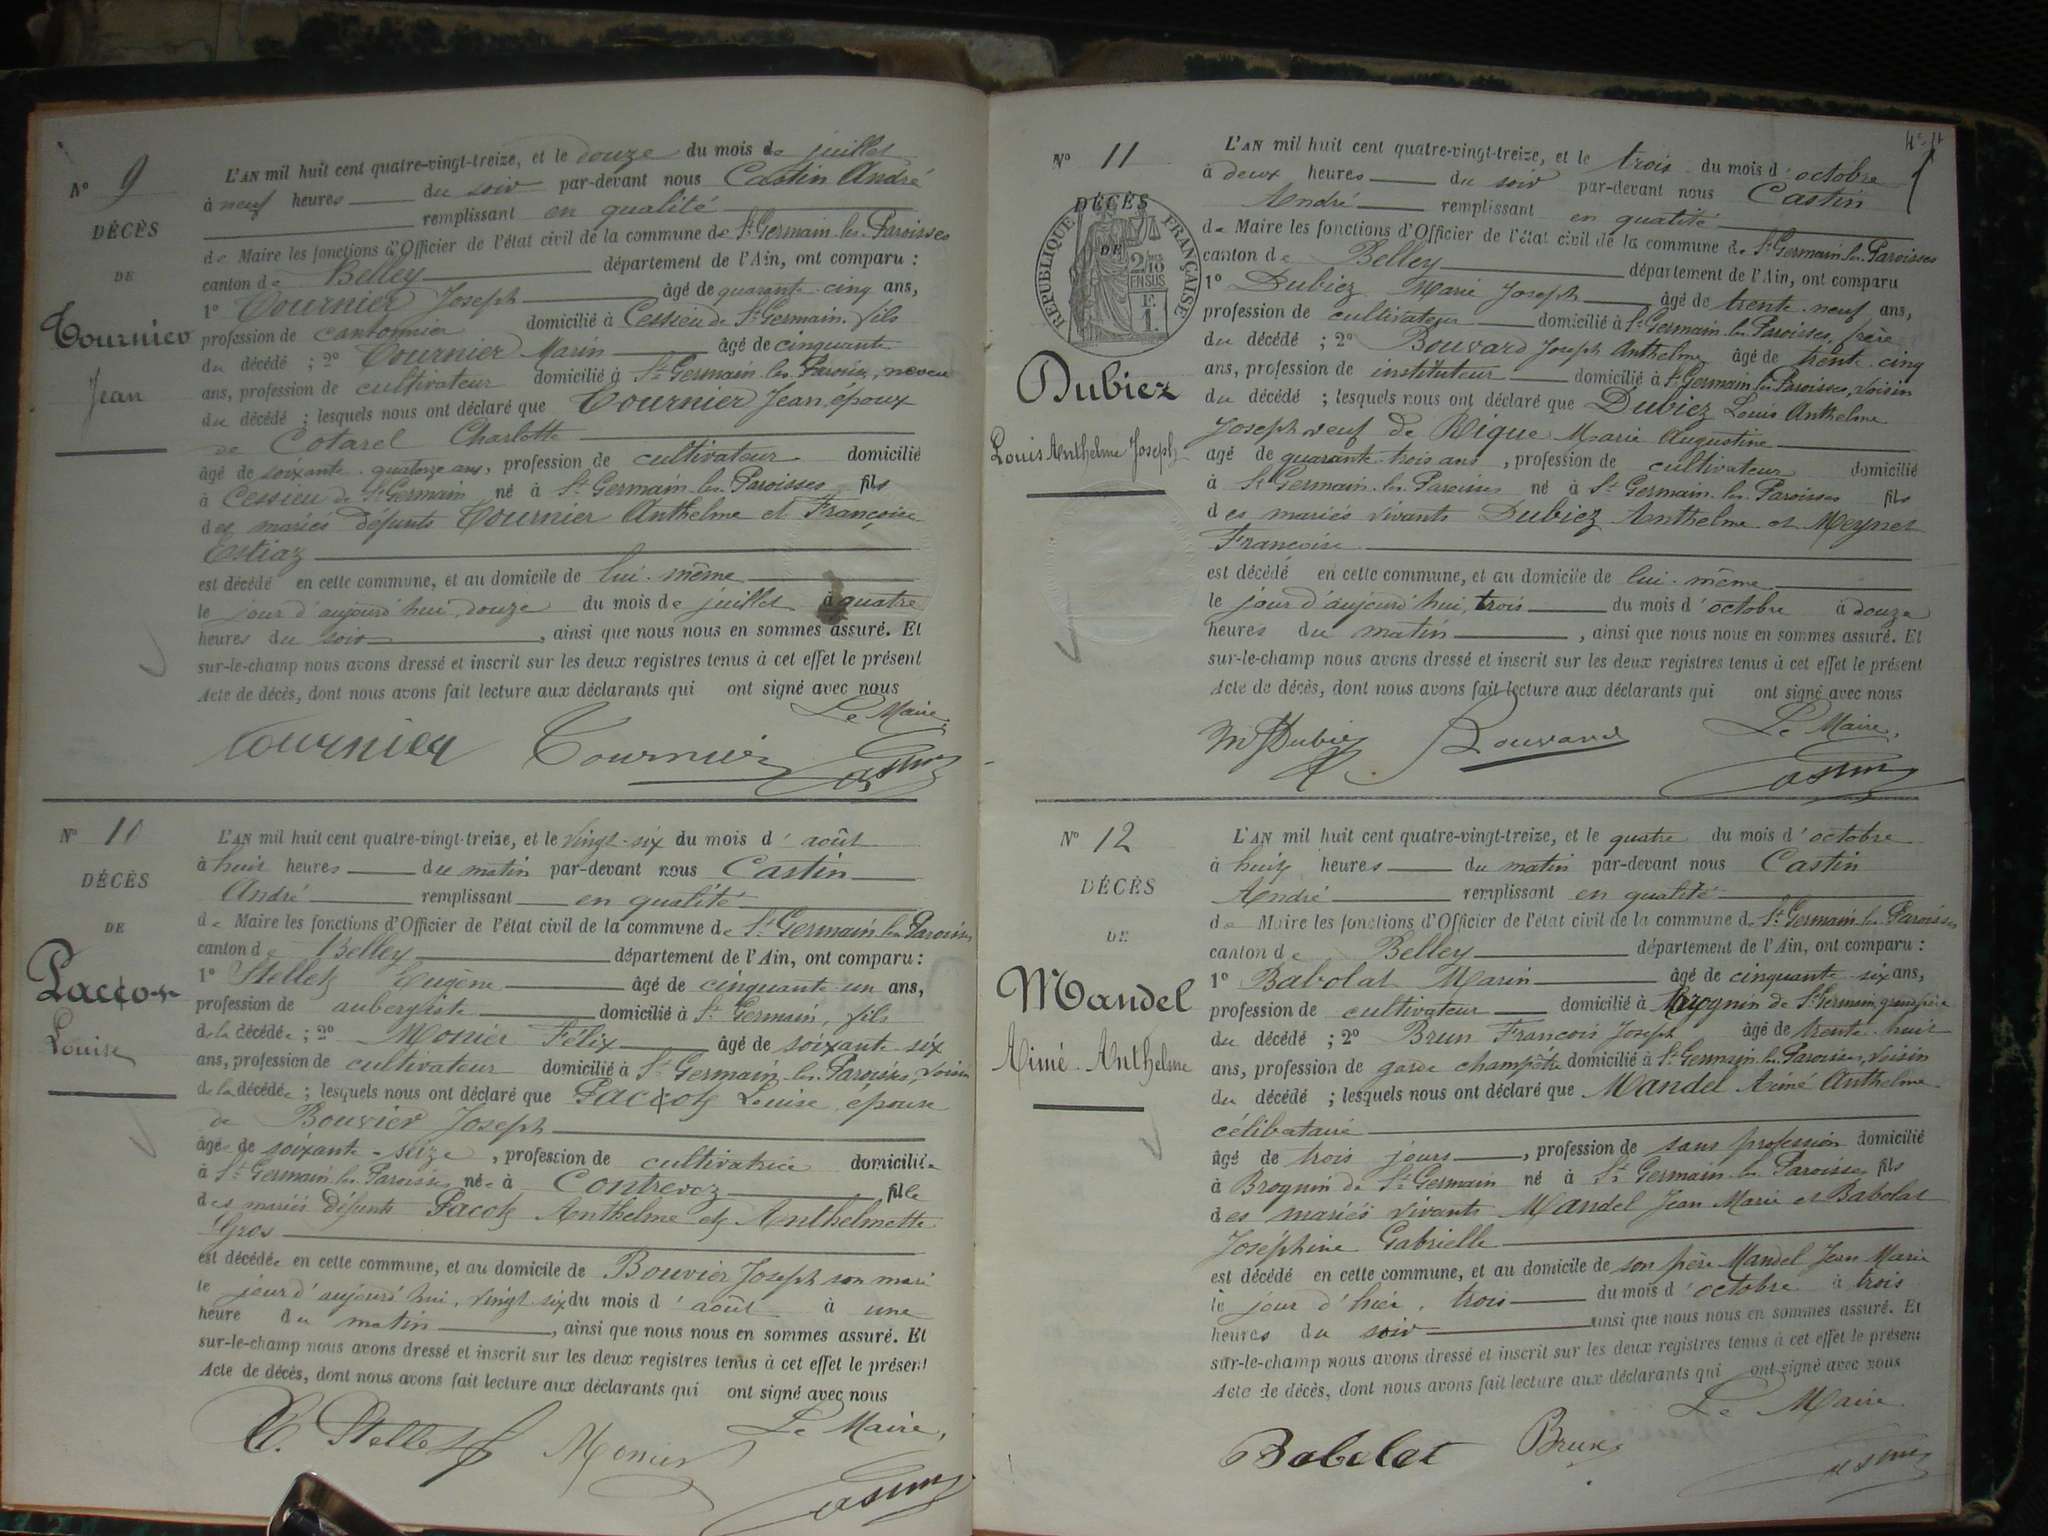 N° 9
DÉCÈS
DE
Tournier
Jean
L'AN mil huit cent quatre-vingt-treize, et le douze du mois de juillet
à neuf heures du soir par-devant nous Castin André
remplissant en qualité
de Maire les fonctions d'Officier de l'état civil de la commune de St Germain-les-Paroisses
canton de Belley département de l'Ain, ont comparu :
1° Tournier Joseph âgé de quarante-cinq ans,
profession de cantonnier domicilié à Cessieu de St Germain, fils
du décédé ; 2° Tournier Marin âgé de cinquante
ans, profession de cultivateur domicilié à St Germain-les-Paroisses, neveu
du décédé ; lesquels nous ont déclaré que Tournier Jean, époux
de Cotarel Charlotte
âgé de soixante-quatorze ans, profession de cultivateur domicilié
à Cessieu de St Germain né à St Germain-les-Paroisses fils
des mariés défunts Tournier Anthelme et Françoise
Estiaz
est décédé en cette commune, et au domicile de lui-même
le jour d'aujourd'hui douze du mois de juillet à quatre
heures du soir, ainsi que nous nous en sommes assuré. Et
sur-le-champ nous avons dressé et inscrit sur les deux registres tenus à cet effet le présent
Acte de décès, dont nous avons fait lecture aux déclarants qui ont signé avec nous
Le Maire,
Tournier Tournier Castin
N° 10
DÉCÈS
DE
Paccot
Louise
L'AN mil huit cent quatre-vingt-treize, et le vingt-six du mois d'août
à huit heures du matin par-devant nous Castin
André remplissant en qualité
de Maire les fonctions d'Officier de l'état civil de la commune de St Germain-les-Paroisses
canton de Belley département de l'Ain, ont comparu :
1° Stellet Eugène âgé de cinquante-un ans,
profession de aubergiste domicilié à St Germain, fils
de la décédée ; 2° Monier Félix âgé de soixante-six
ans, profession de cultivateur domicilié à St Germain-les-Paroisses, voisin
de la décédée ; lesquels nous ont déclaré que Paccot Louise, épouse
de Bouvier Joseph
âgée de soixante-seize, profession de cultivatrice domiciliée
à St Germain-les-Paroisses née à Contrevoz fille
des mariés défunts Pacot Anthelme et Anthelmette
Gros
est décédée en cette commune, et au domicile de Bouvier Joseph son mari
le jour d'aujourd'hui, vingt-six du mois d'août à une
heure du matin, ainsi que nous nous en sommes assuré. Et
sur-le-champ nous avons dressé et inscrit sur les deux registres tenus à cet effet le présent
Acte de décès, dont nous avons fait lecture aux déclarants qui ont signé avec nous
Le Maire,
E. Stellet Monier Castin
N° 11
DÉCÈS
DE
RÉPUBLIQUE FRANÇAISE
2/10 EN SUS
F.
1.
Dubiez
Louis Anthelme Joseph
L'AN mil huit cent quatre-vingt-treize, et le trois du mois d'octobre
à deux heures du soir par-devant nous Castin
André remplissant en qualité
de Maire les fonctions d'Officier de l'état civil de la commune de St Germain-les-Paroisses
canton de Belley département de l'Ain, ont comparu
1° Dubiez Marie Joseph âgé de trente-neuf ans,
profession de cultivateur domicilié à St Germain-les-Paroisses, frère
du décédé ; 2° Bouvard Joseph Anthelme âgé de trente-cinq
ans, profession de instituteur domicilié à St Germain-les-Paroisses, voisin
du décédé ; lesquels nous ont déclaré que Dubiez Louis Anthelme
Joseph veuf de Rique Marie Augustine
âgé de quarante-trois ans, profession de cultivateur domicilié
à St Germain-les-Paroisses né à St Germain-les-Paroisses fils
des mariés vivants Dubiez Anthelme et Meynet
Françoise
est décédé en cette commune, et au domicile de lui-même
le jour d'aujourd'hui, trois du mois d'octobre à douze
heures du matin, ainsi que nous nous en sommes assuré. Et
sur-le-champ nous avons dressé et inscrit sur les deux registres tenus à cet effet le présent
Acte de décès, dont nous avons fait lecture aux déclarants qui ont signé avec nous
Le Maire,
M J Dubiez Bouvard Castin
N° 12
DÉCÈS
DE
Mandel
Aimé-Anthelme
L'AN mil huit cent quatre-vingt-treize, et le quatre du mois d'octobre
à huit heures du matin par-devant nous Castin
André remplissant en qualité
de Maire les fonctions d'Officier de l'état civil de la commune de St Germain-les-Paroisses
canton de Belley département de l'Ain, ont comparu :
1° Babolat Marin âgé de cinquante-six ans,
profession de cultivateur domicilié à Brognin de St Germain, grand père
du décédé ; 2° Brun François Joseph âgé de trente-huit
ans, profession de garde champêtre domicilié à St Germain-les-Paroisses, voisin
du décédé ; lesquels nous ont déclaré que Mandel Aimé Anthelme
célibataire
âgé de trois jours, profession de sans profession domicilié
à Brognin de St Germain né à St Germain-les-Paroisses fils
des mariés vivants Mandel Jean Marie et Babolat
Joséphine Gabrielle
est décédé en cette commune, et au domicile de son père Mandel Jean Marie
le jour d'hier, trois du mois d'octobre à trois
heures du soir ainsi que nous nous en sommes assuré. Et
sur-le-champ nous avons dressé et inscrit sur les deux registres tenus à cet effet le présent
Acte de décès, dont nous avons fait lecture aux déclarants qui ont signé avec nous
Le Maire
Babolat Brun Castin